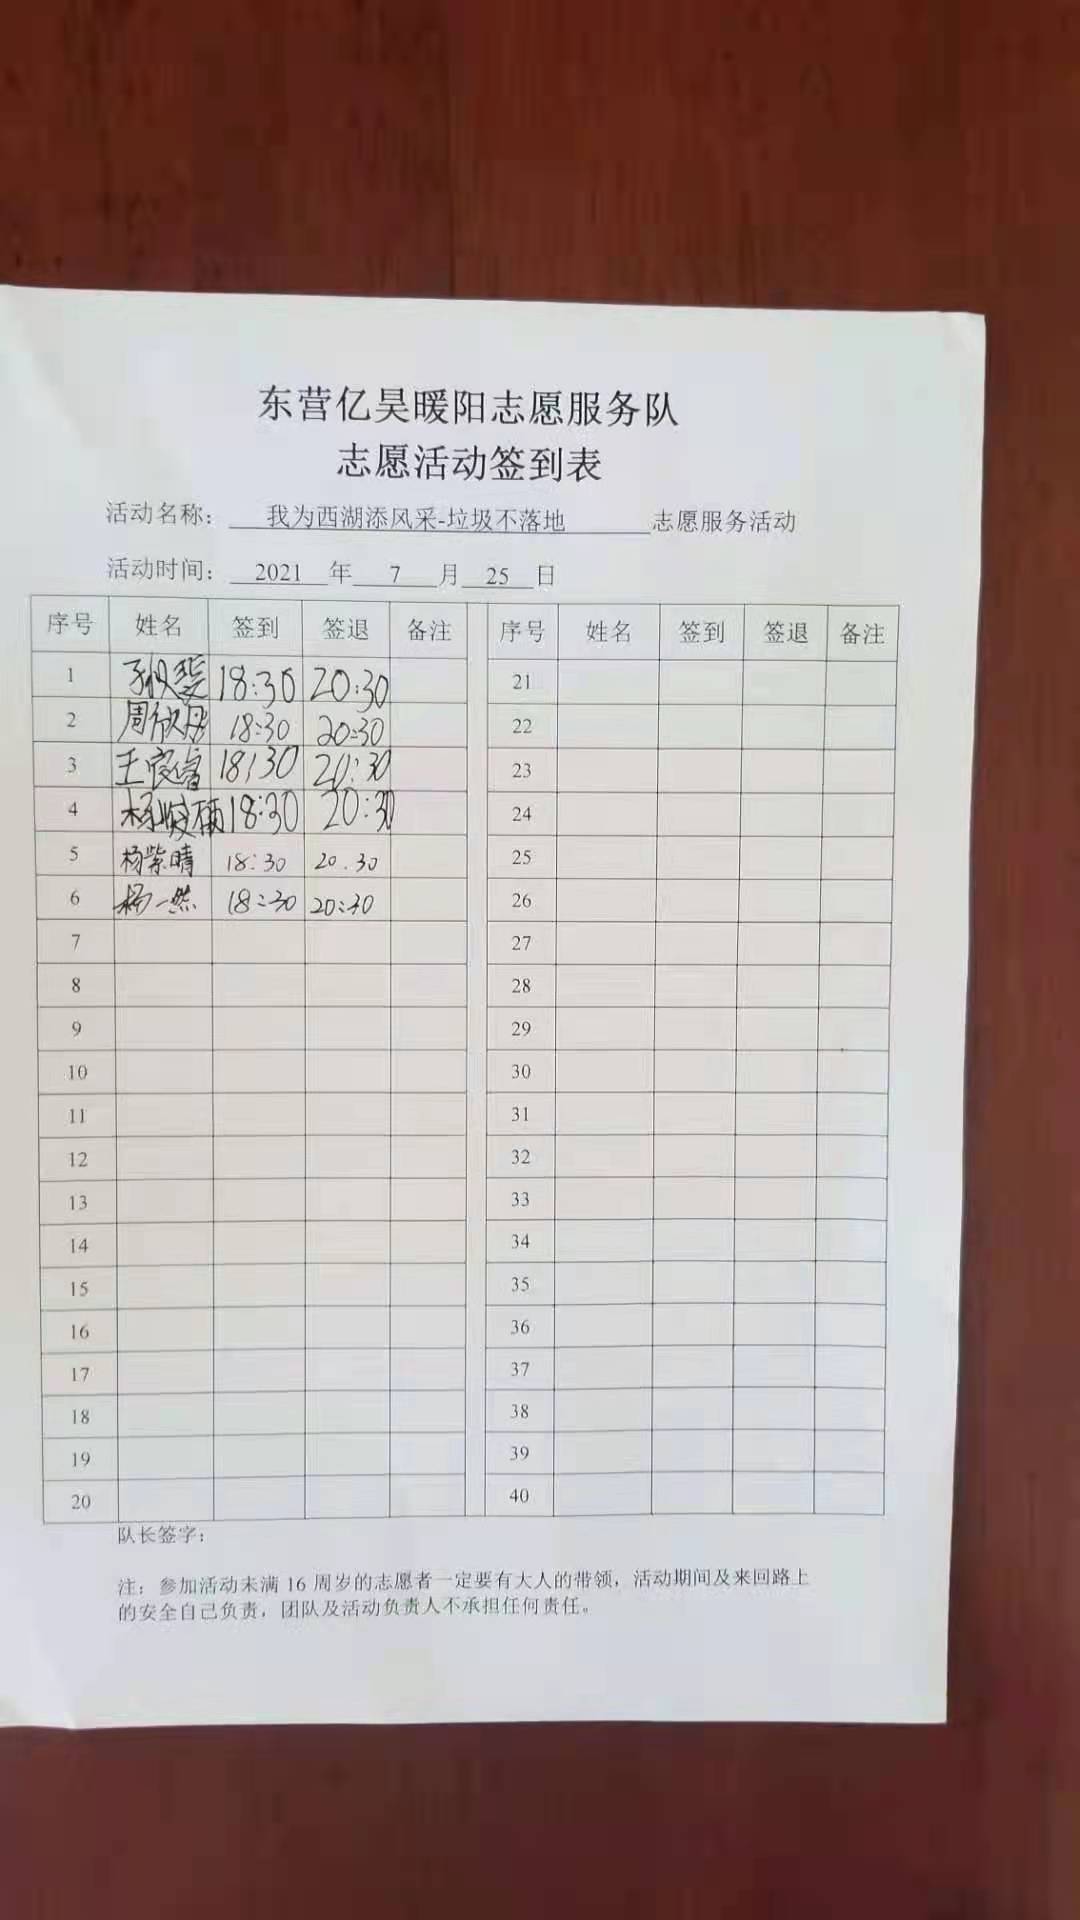 东营亿昊暖阳志愿服务队
志愿活动签到表
活动名称： 我为西湖添风采-垃圾不落地 志愿服务活动
活动时间： 2021 年 7 月 25 日
序号 姓名 签到 签退 备注 序号 姓名 签到 签退 备注
1 18:30 20:30 21
2 周欣丹 18:30 20:30 22
3 王良睿 18:30 20:30 23
4 18:30 20:30 24
5 杨紫晴 18:30 20.30 25
6 杨一然 18:30 20:30 26
7 27
8 28
9 29
10 30
11 31
12 32
13 33
14 34
15 35
16 36
17 37
18 38
19 39
20 40
队长签字：
注：参加活动未满 16 周岁的志愿者一定要有大人的带领，活动期间及来回路上
的安全自己负责，团队及活动负责人不承担任何责任。